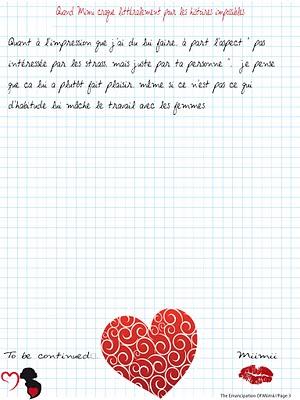 Quand Mimi craque littéralement pour les histoires impossibles
Quant à l'impression que j'ai du lui faire, à part l'aspect " pas
intéressée par les strass, mais juste par ta personne ", je pense
que ca lui a plutôt fait plaisir, même si ce n'est pas ce qui
d'habitude lui mâche le travail avec les femmes.
To be continued
Miimii
The Emancipation Of Miimii/Page 3